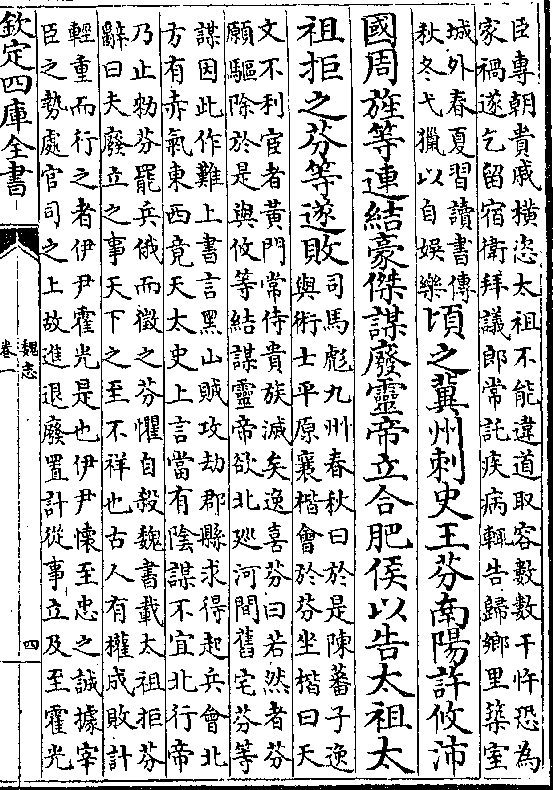 臣專朝貴戚橫恣太祖不能違道取容數數干忤恐為
家禍遂乞留宿衛拜議郎常託疾病輒告歸鄉里築室
城外春夏習讀書傳
秋冬弋獵以自娛樂
頃之冀州刺史王芬南陽許攸沛
國周旌等連結豪傑謀廢靈帝立合肥侯以告太祖太
祖拒之芬等遂敗
司馬彪九州春秋曰於是陳蕃子逸
與術士平原襄楷會於芬坐楷曰天
文不利宦者黃門常侍貴族滅矣逸喜芬曰若然者芬
願驅除於是與攸等結謀靈帝欲北廵河間舊宅芬等
謀因此作難上書言黑山賊攻劫郡縣求得起兵會北
方有赤氣東西竟天太史上言當有陰謀不宜北行帝
乃止勑芬罷兵俄而徵之芬懼自殺魏書載太祖拒芬
辭曰夫廢立之事天下之至不祥也古人有權成敗計
輕重而行之者伊尹霍光是也伊尹懷至忠之誠據宰
臣之勢處官司之上故進退廢置計從事立及至霍光
欽定四庫全書
魏志
卷一
四